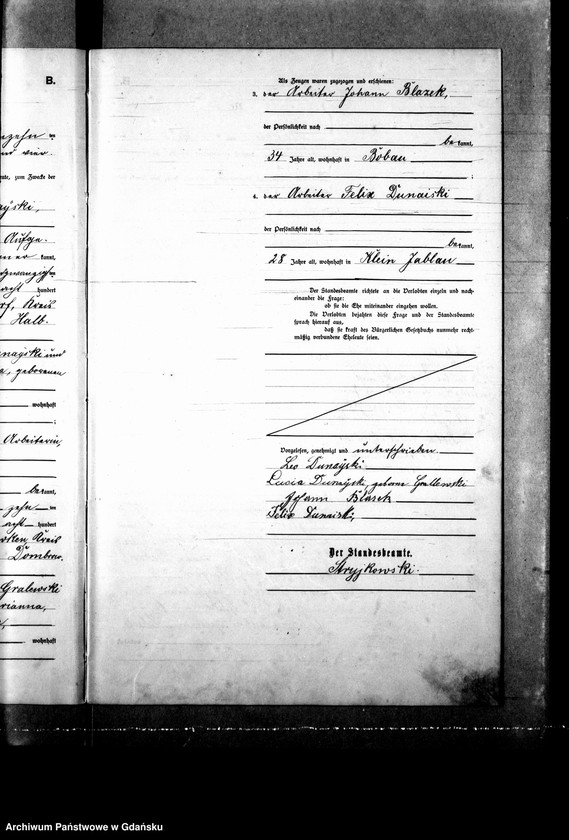 B.
zehn
und vier.
zum Zwecke der
Aufge.
kannt,
acht hundert
Kreis
Halb.
und
geborenen
wohnhaft
;
Arbeiterin,
bekannt,
zehn
acht hundert
Kreis
Dombrow.
Gralewski
wohnhaft
Als Zeugen waren zugezogen und erschienen:
3. der Arbeiter Johann Blazek,
der Persönlichkeit nach
bekannt,
34 Jahre alt, wohnhaft in Bobau
;
4. der Arbeiter Felix Dunaiski
der Persönlichkeit nach
bekannt,
28 Jahre alt, wohnhaft in Klein Jablau
Der Standesbeamte richtete an die Verlobten einzeln und nach-
einander die Frage:
ob sie die Ehe miteinander eingehen wollen.
Die Verlobten bejahten diese Frage und der Standesbeamte
sprach hierauf aus,
daß sie kraft des Bürgerlichen Gesetzbuchs nunmehr recht-
mäßig verbundene Eheleute seien.
Vorgelesen, genehmigt und unterschrieben.
Leo Dunayski
Lucia Dunayski, geborne Grallewski
Johann Blasek
Felix Dunaiski,
Der Standesbeamte.
Stryjkowski.
Archiwum Państwowe w Gdańsku